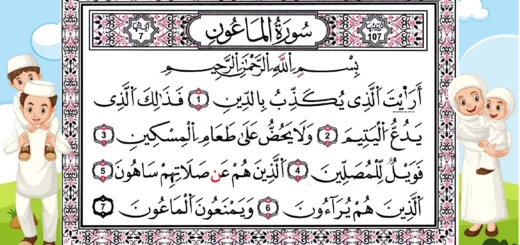 سُورَةُ الْمَاعُونِ
107
7
بِسْمِ اللَّهِ الرَّحْمَٰنِ الرَّحِيمِ
أَرَأَيْتَ الَّذِي يُكَذِّبُ بِالدِّينِ 1 فَذَٰلِكَ الَّذِي
يَدُعُّ الْيَتِيمَ 2 وَلَا يَحُضُّ عَلَىٰ طَعَامِ الْمِسْكِينِ 3
فَوَيْلٌ لِّلْمُصَلِّينَ 4 الَّذِينَ هُمْ عَن صَلَاتِهِمْ سَاهُونَ 5
الَّذِينَ هُمْ يُرَآءُونَ 6 وَيَمْنَعُونَ الْمَاعُونَ 7